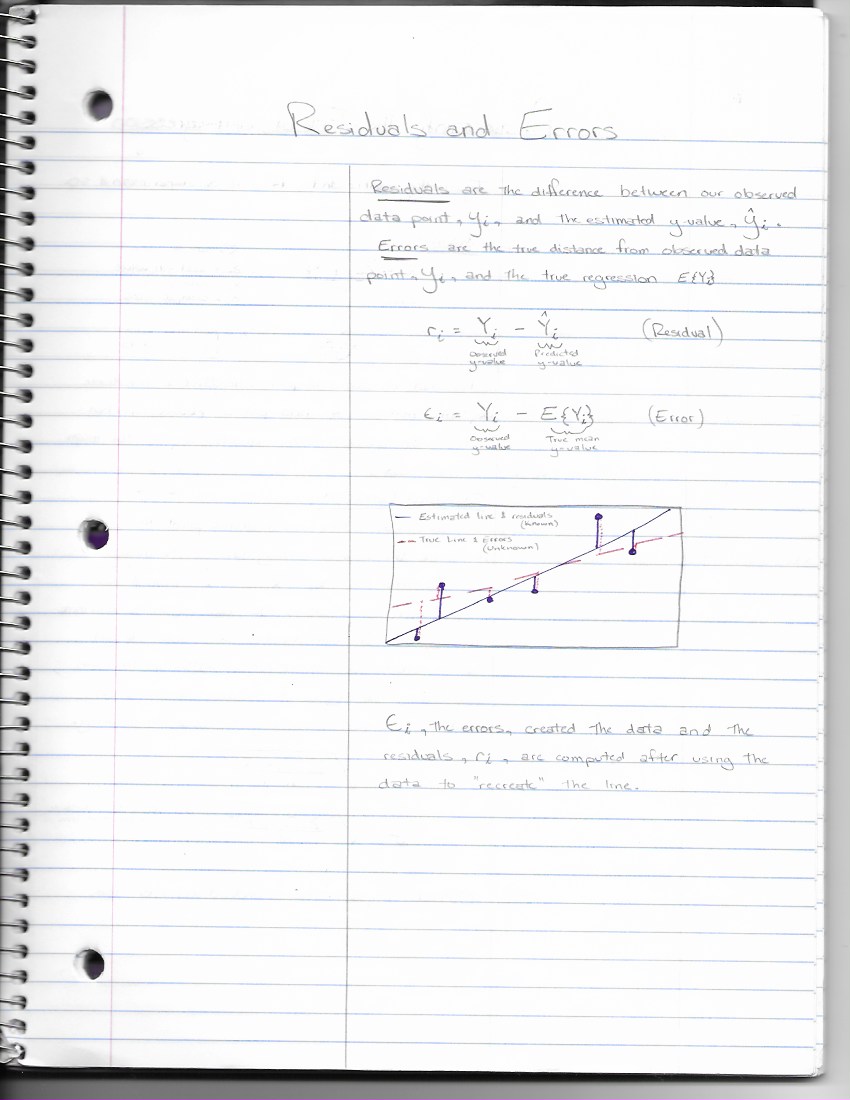 Residuals and Errors
Residuals are the difference between our observed
data point, yᵢ, and the estimated y-value, ŷᵢ.
Errors are the true distance from observed data
point, yᵢ, and the true regression E{Yᵢ}
rᵢ = Yᵢ - Ŷᵢ (Residual)
Observed Predicted
y-value y-value
ϵᵢ = Yᵢ - E{Yᵢ} (Error)
Observed True mean
y-value y-value
Estimated line & residuals
(Known)
True Line & Errors
(Unknown)
ϵᵢ, the errors, created the data and the
residuals, rᵢ, are computed after using the
data to "recreate" the line.